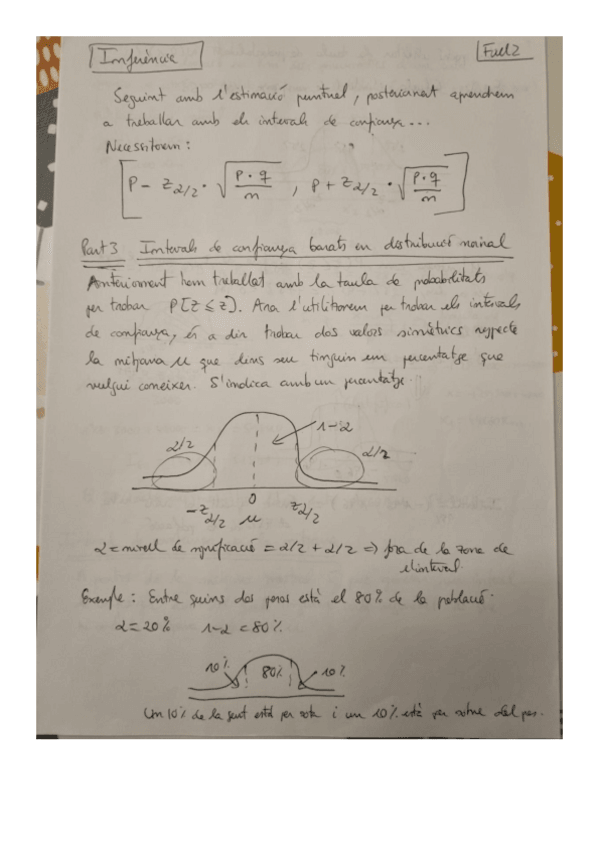 Inferència
Full 2
Seguint amb l'estimació puntual, posteriorment aprendrem
a treballar amb els intervals de confiança...
Necessitarem:
[P - Z α/2 · √(P·q/n) , P + Z α/2 · √(P·q/n)]
Part 3 Intervals de confiança basats en distribució normal
Anteriorment hem treballat amb la taula de probabilitats
per trobar P[Z ≤ z]. Ara l'utilitzarem per trobar els intervals
de confiança, és a dir trobar dos valors simètrics respecte
la mitjana μ que dins seu tinguin un percentatge que
vulgui coneixer. S'indica amb un percentatge.
α/2 1-α α/2
-Z α/2 0 μ Z α/2
α = nivell de significació = α/2 + α/2 => fora de la zona de
l'interval.
Exemple: Entre quins dos pesos està el 80% de la població.
α = 20% 1-α = 80%
10% 80% 10%
Un 10% de la gent està per sota i un 10% està per sobre del pes.